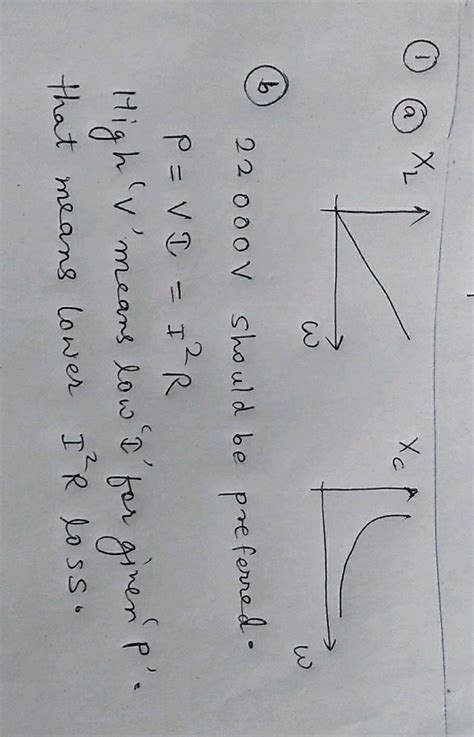 ① ⓐ X_L X_c
ω ω
ⓑ 22000V should be preferred.
P = VI = I²R
High 'V' means low 'I' for given 'P'.
that means lower I²R loss.